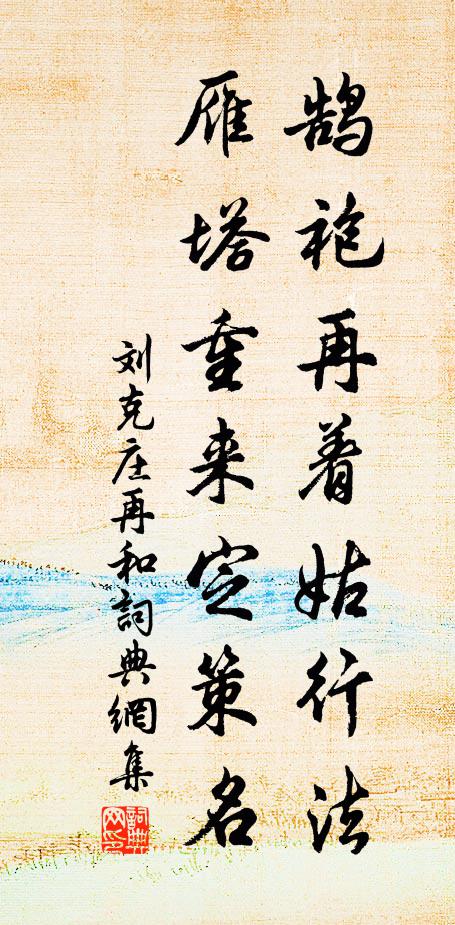 鹄袍再着姑行法
雁塔重来定策名
刘克庄再和詞典網集
詞典网印